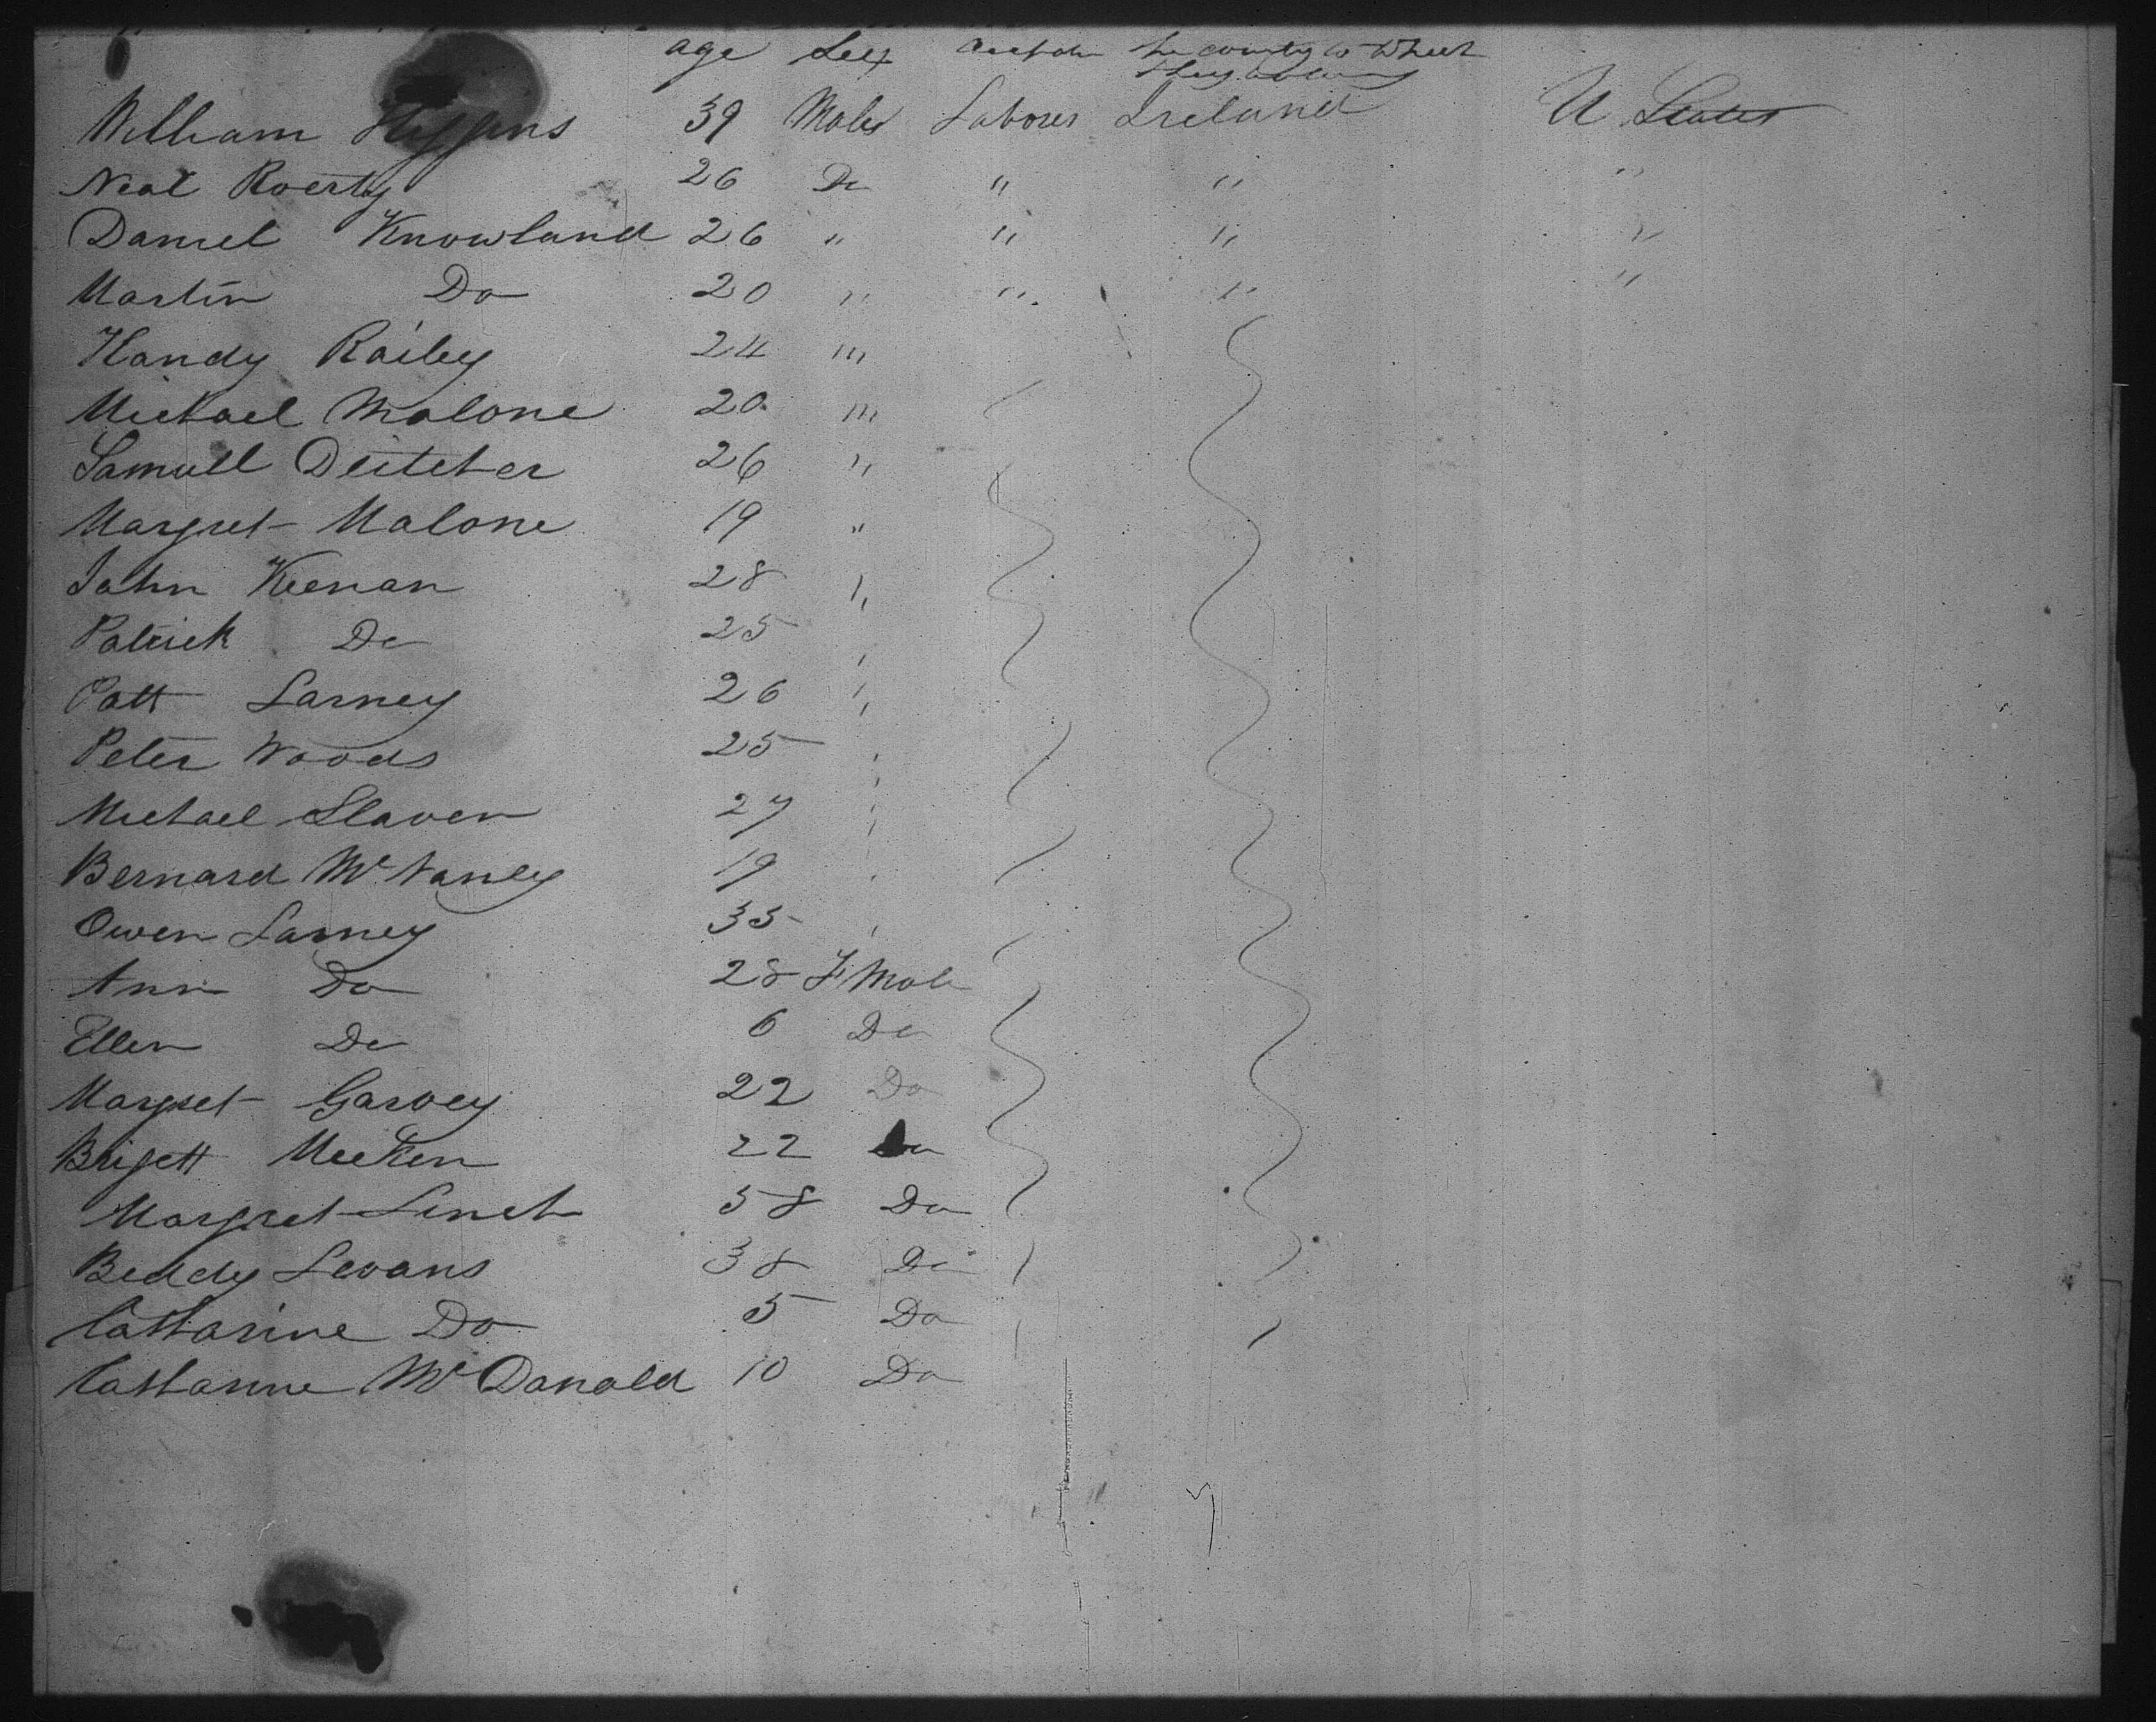 age Sex the county to which
they belong
William Higgins 39 Male Labourer Ireland U States
Neal Roerty 26 Do " " "
Daniel Knowland 26 " " " "
Martin Do 20 " " " "
Handy Railey 24 "
Michael Malone 20 "
Samuell Deitcher 26 "
Margret Malone 19 "
John Keenan 28 "
Patrick Do 25 "
Patt Larney 26 "
Peter Woods 25 "
Michael Slaven 27 "
Bernard Mc Nanley 19 "
Owen Larney 35 "
Ann Do 28 F Male
Ellen Do 6 Do
Margret Garvey 22 Do
Brigett Meeken 22 Do
Margret Linch 58 Do
Beddy Levans 38 Do
Catharine Do 5 Do
Catharine Mc Donald 10 Do